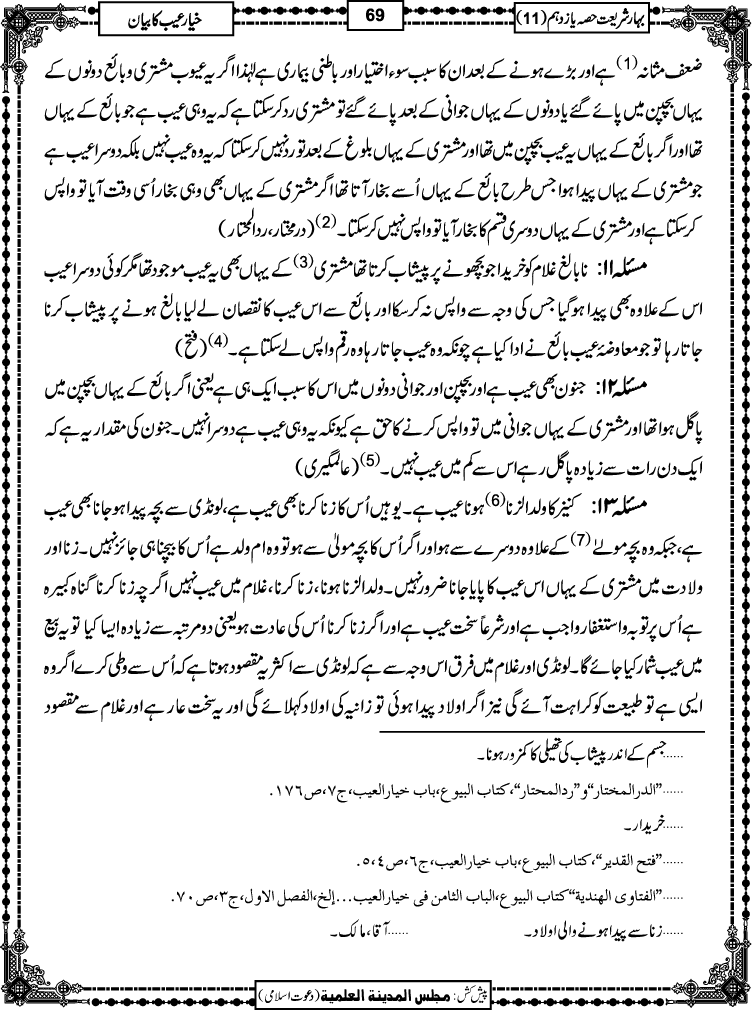 بہار شریعت حصہ یازدہم (11)
69
خیار عیب کا بیان
ضعف مثانہ (1) ہے اور بڑے ہونے کے بعد ان کا سبب سوء اختیار اور باطنی بیماری ہے لہٰذا اگر یہ عیوب مشتری و بائع دونوں کے
یہاں بچپن میں پائے گئے یا دونوں کے یہاں جوانی کے بعد پائے گئے تو مشتری رد کرسکتا ہے کہ یہ وہی عیب ہے جو بائع کے یہاں
تھا اور اگر بائع کے یہاں یہ عیب بچپن میں تھا اور مشتری کے یہاں بلوغ کے بعد تو رد نہیں کرسکتا کہ یہ وہ عیب نہیں بلکہ دوسرا عیب ہے
جو مشتری کے یہاں پیدا ہوا جس طرح بائع کے یہاں اُسے بخار آتا تھا اگر مشتری کے یہاں بھی وہی بخار اُسی وقت آیا تو واپس
کرسکتا ہے اور مشتری کے یہاں دوسری قسم کا بخار آیا تو واپس نہیں کرسکتا۔ (2) (درمختار، ردالمحتار)
مسئلہ ۱۱: نابالغ غلام کو خریدا جو بچھونے پر پیشاب کرتا تھا مشتری (3) کے یہاں بھی یہ عیب موجود تھا مگر کوئی دوسرا عیب
اس کے علاوہ بھی پیدا ہوگیا جس کی وجہ سے واپس نہ کرسکا اور بائع سے اس عیب کا نقصان لے لیا بالغ ہونے پر پیشاب کرنا
جاتا رہا تو جو معاوضۂ عیب بائع نے ادا کیا ہے چونکہ وہ عیب جاتا رہا وہ رقم واپس لے سکتا ہے۔ (4) (فتح)
مسئلہ ۱۲: جنون بھی عیب ہے اور بچپن اور جوانی دونوں میں اس کا سبب ایک ہی ہے یعنی اگر بائع کے یہاں بچپن میں
پاگل ہوا تھا اور مشتری کے یہاں جوانی میں تو واپس کرنے کا حق ہے کیونکہ یہ وہی عیب ہے دوسرا نہیں۔ جنون کی مقدار یہ ہے کہ
ایک دن رات سے زیادہ پاگل رہے اس سے کم میں عیب نہیں۔ (5) (عالمگیری)
مسئلہ ۱۳: کنیز کا ولدالزنا (6) ہونا عیب ہے۔ یوہیں اُس کا زنا کرنا بھی عیب ہے، لونڈی سے بچہ پیدا ہوجانا بھی عیب
ہے، جبکہ وہ بچہ مولےٰ (7) کے علاوہ دوسرے سے ہو اور اگر اُس کا بچہ مولیٰ سے ہو تو وہ ام ولد ہے اُس کا بیچنا ہی جائز نہیں۔ زنا اور
ولادت میں مشتری کے یہاں اس عیب کا پایا جانا ضرور نہیں۔ ولدالزنا ہونا، زنا کرنا، غلام میں عیب نہیں اگرچہ زنا کرنا گناہ کبیرہ
ہے اُس پر توبہ و استغفار واجب ہے اور شرعاً سخت عیب ہے اور اگر زنا کرنا اُس کی عادت ہو یعنی دو مرتبہ سے زیادہ ایسا کیا تو یہ بیع
میں عیب شمار کیا جائے گا۔ لونڈی اور غلام میں فرق اس وجہ سے ہے کہ لونڈی سے اکثر یہ مقصود ہوتا ہے کہ اُس سے وطی کرے اگر وہ
ایسی ہے تو طبیعت کو کراہت آئے گی نیز اگر اولاد پیدا ہوئی تو زانیہ کی اولاد کہلائے گی اور یہ سخت عار ہے اور غلام سے مقصود
......جسم کے اندر پیشاب کی تھیلی کا کمزور ہونا۔
......"الدرالمختار" و "ردالمحتار"، کتاب البیوع، باب خیارالعیب، ج۷، ص۱۷۶.
......خریدار۔
......"فتح القدیر"، کتاب البیوع، باب خیارالعیب، ج۶، ص۵،۴.
......"الفتاوی الھندیة" کتاب البیوع، الباب الثامن فی خیارالعیب...إلخ، الفصل الاول، ج۳، ص۷۰.
......زنا سے پیدا ہونے والی اولاد۔ ......آقا، مالک۔
پیش کش: مجلس المدینة العلمیة (دعوت اسلامی)